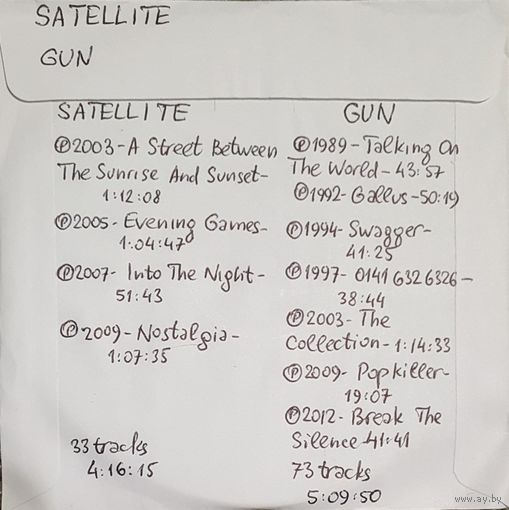 SATELLITE
GUN
SATELLITE
℗2003-A Street Between
The Sunrise And Sunset-
1:12:08
℗2005-Evening Games-
1:04:47
℗2007-Into The Night-
51:43
℗2009-Nostalgia-
1:07:35
33 tracks
4:16:15
GUN
℗1989-Talking On
The World-43:57
℗1992-Gallus-50:19
℗1994-Swagger-
41:25
℗1997-0141 632 6326-
38:44
℗2003-The
Collection-1:14:33
℗2009-Popkiller-
19:07
℗2012-Break The
Silence-41:41
73 tracks
5:09:50
www.ay.by